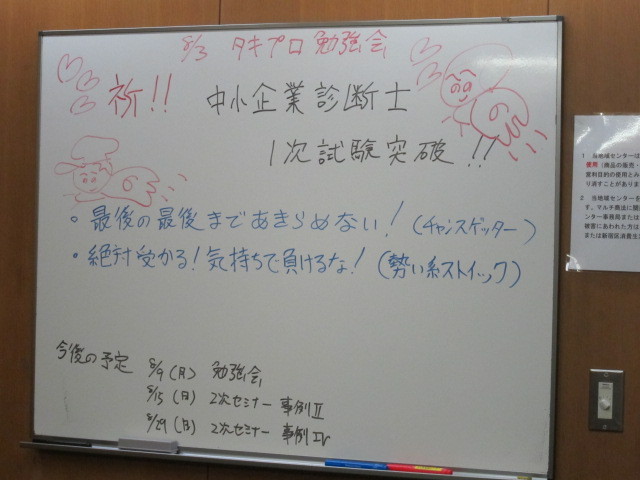 8/3 タキプロ勉強会
祈!! 中小企業診断士
1次試験突破!!
・最後の最後まであきらめない!(チャンスゲッター)
・絶対受かる!気持ちで負けるな!(勢い系ストイック)
今後の予定
8/9(月) 勉強会
8/15(日) 2次セミナー 事例Ⅱ
8/29(日) 2次セミナー 事例Ⅳ
1 当地域センターは
使用(商品の販売・
営利目的の使用とみ
り消すことがありま
2 当地域センターを
す。マルチ商法に関
ンター事務局または
被害にあわれた方は
または新宿区消費生